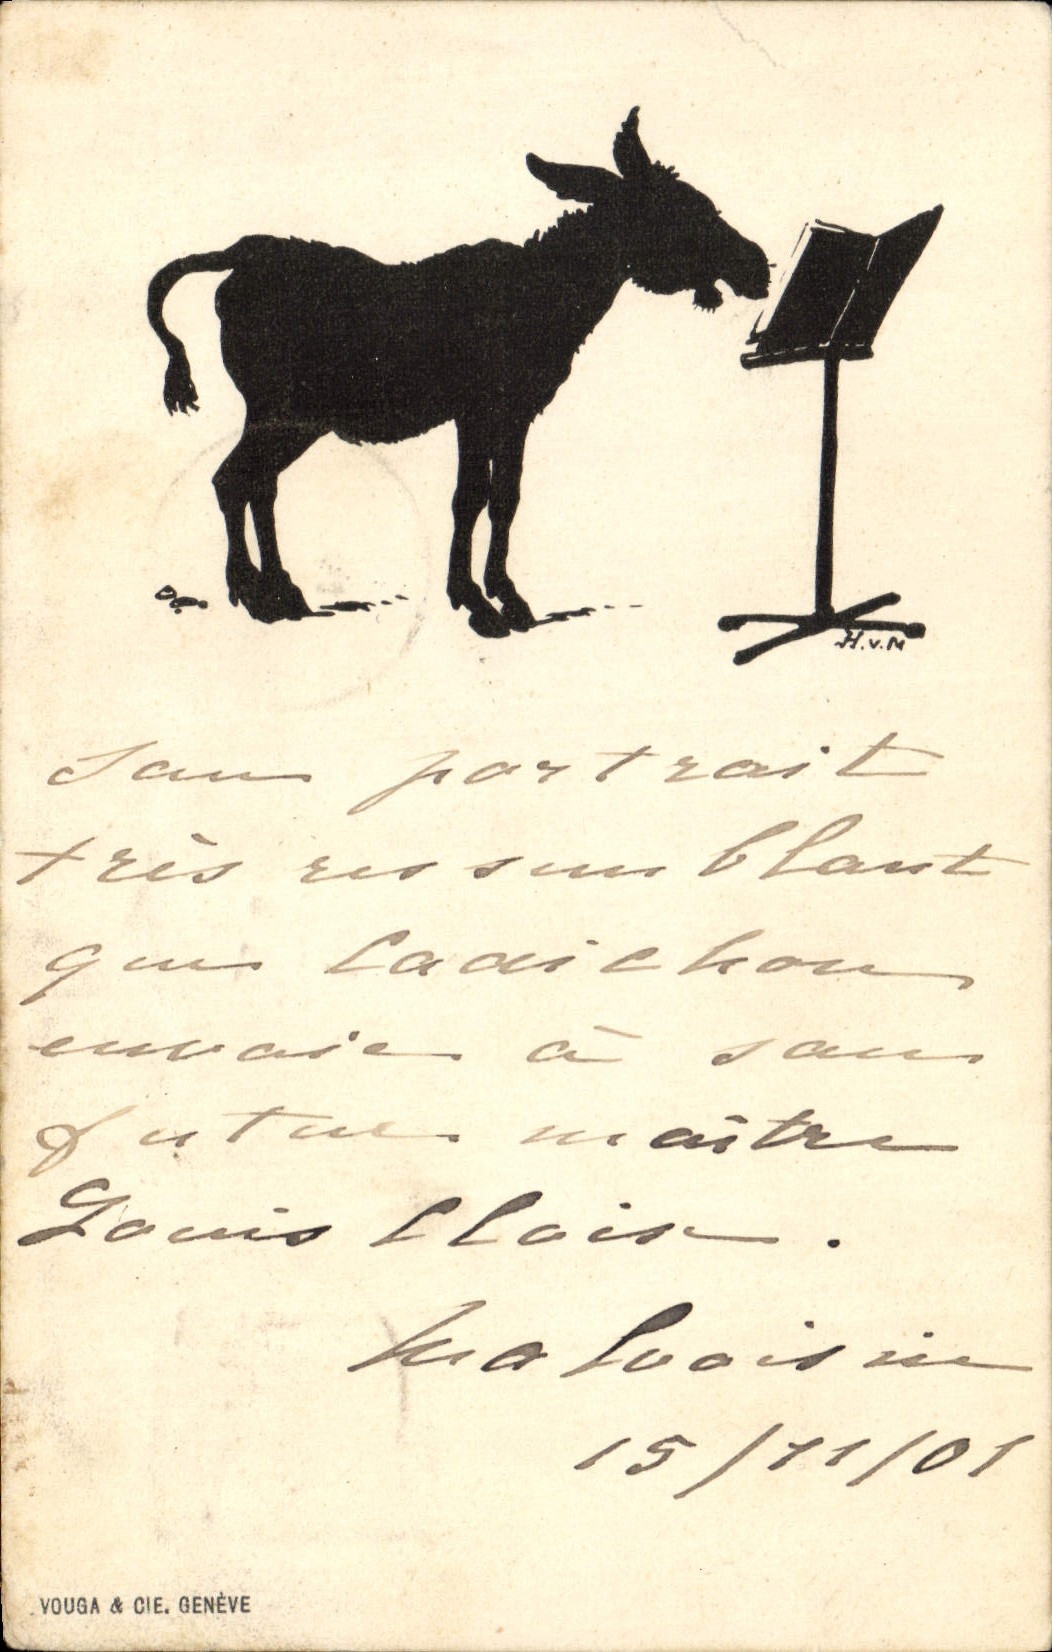 H.v.N
son portrait
très ressemblant
que Cadichon
envoie à son
futur maître
Louis
Malvoisin
15/11/01
VOUGA & CIE. GENÈVE